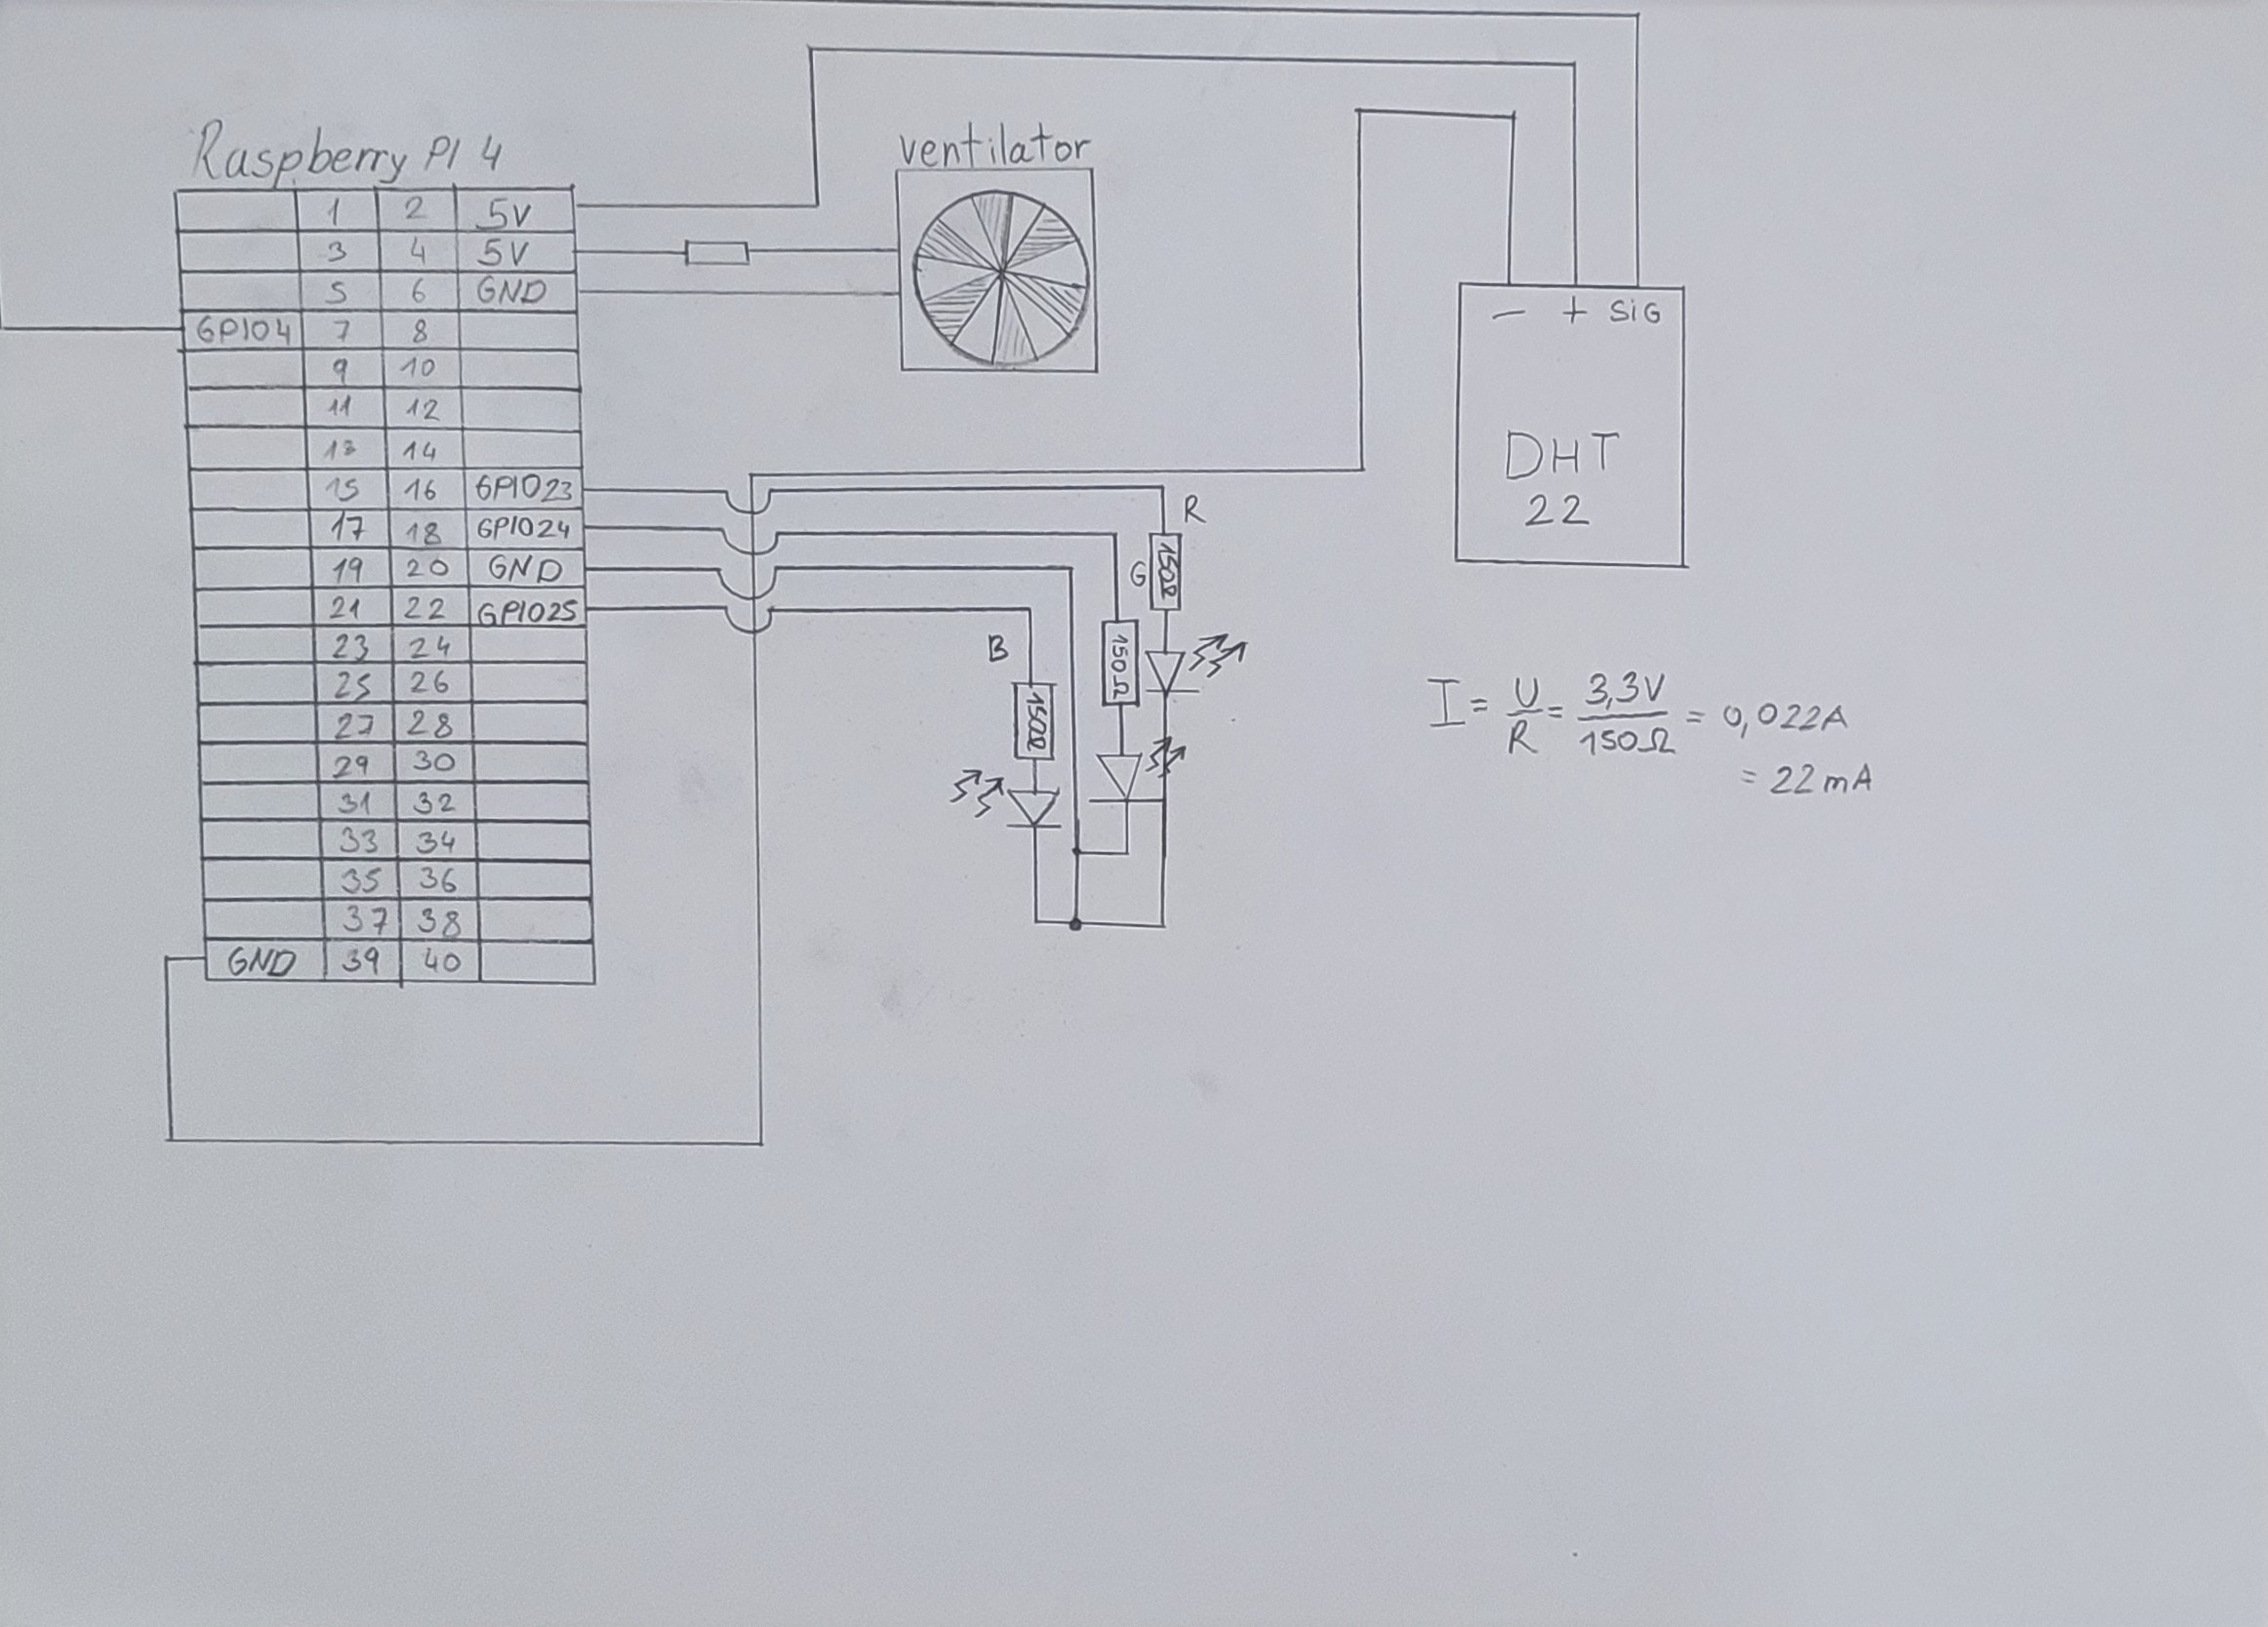 Raspberry PI 4
1 2 5V
3 4 5V
5 6 GND
GPIO4 7 8
9 10
11 12
13 14
15 16 GPIO23
17 18 GPIO24
19 20 GND
21 22 GPIO25
23 24
25 26
27 28
29 30
31 32
33 34
35 36
37 38
GND 39 40
ventilator
R
150Ω
G
150Ω
B
150Ω
– + SiG
DHT
22
I = U/R = 3,3V/150Ω = 0,022A
= 22mA